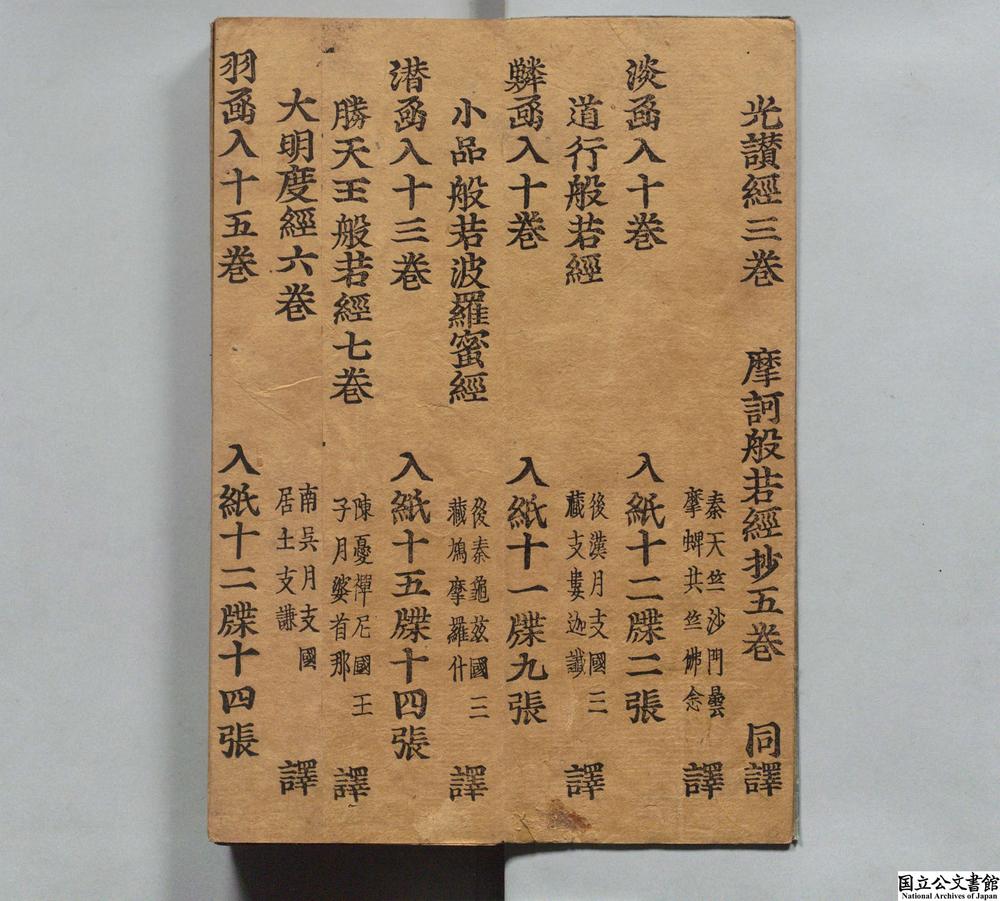 光讃經三巻 摩訶般若經抄五巻 同譯
秦天竺沙門曇
摩蜱共竺佛念
譯
淡函入十巻 入紙十二牒二張
道行般若經
後漢月支國三
藏支婁迦讖
譯
鱗函入十巻 入紙十一牒九張
小品般若波羅蜜經
後秦龜茲國三
藏鳩摩羅什
譯
潛函入十三巻 入紙十五牒十四張
勝天王般若經七巻
陳憂禪尼國王
子月婆首那
譯
大明度經六巻
南吳月支國
居士支謙
譯
羽函入十五巻 入紙十二牒十四張
国立公文書館
National Archives of Japan